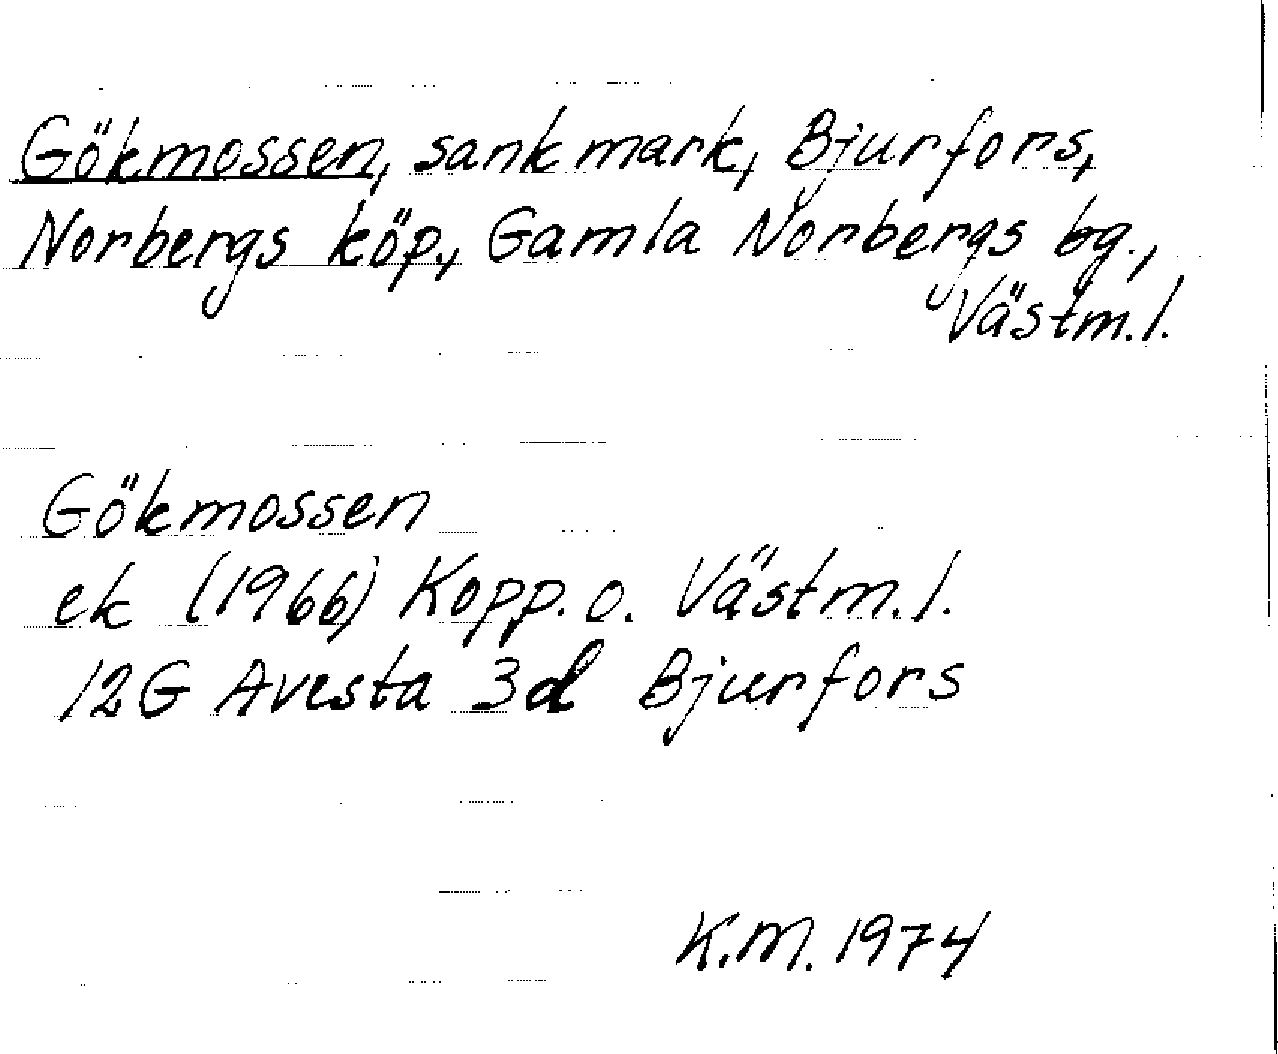 Gökmossen, sankmark, Bjurfors,
Norbergs köp., Gamla Norbergs bg.,
Västm.l.
Gökmossen
ek (1966) Kopp. o. Västm.l.
12G Avesta 3d Bjurfors
K.M. 1974